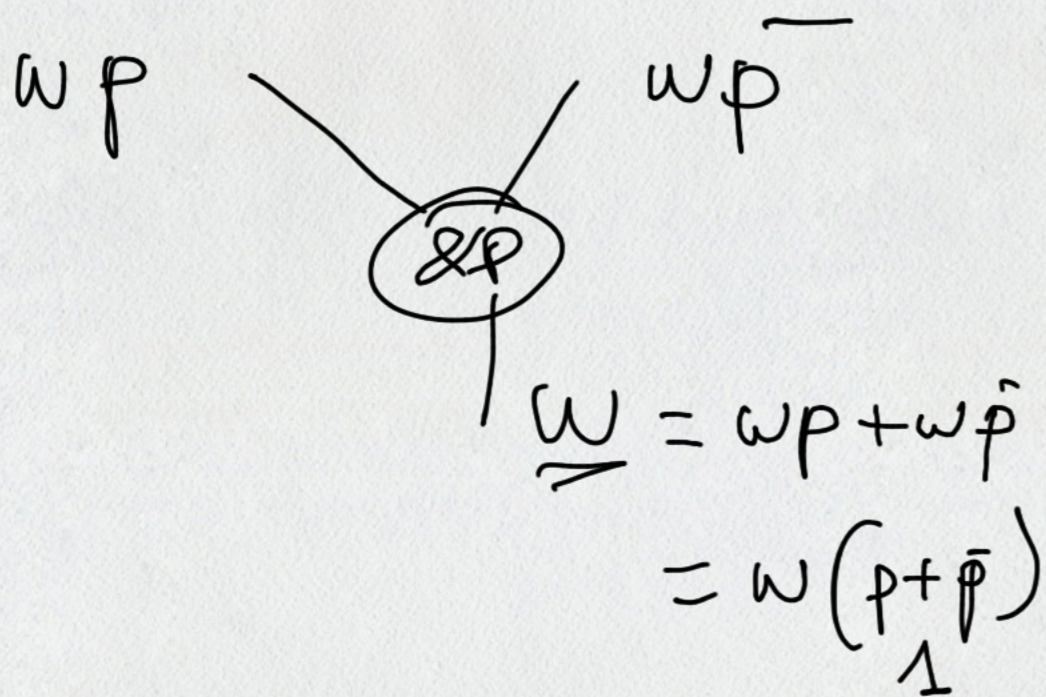 wp wp̄
&p
w = wp + wp̄
= w(p+p̄)
1